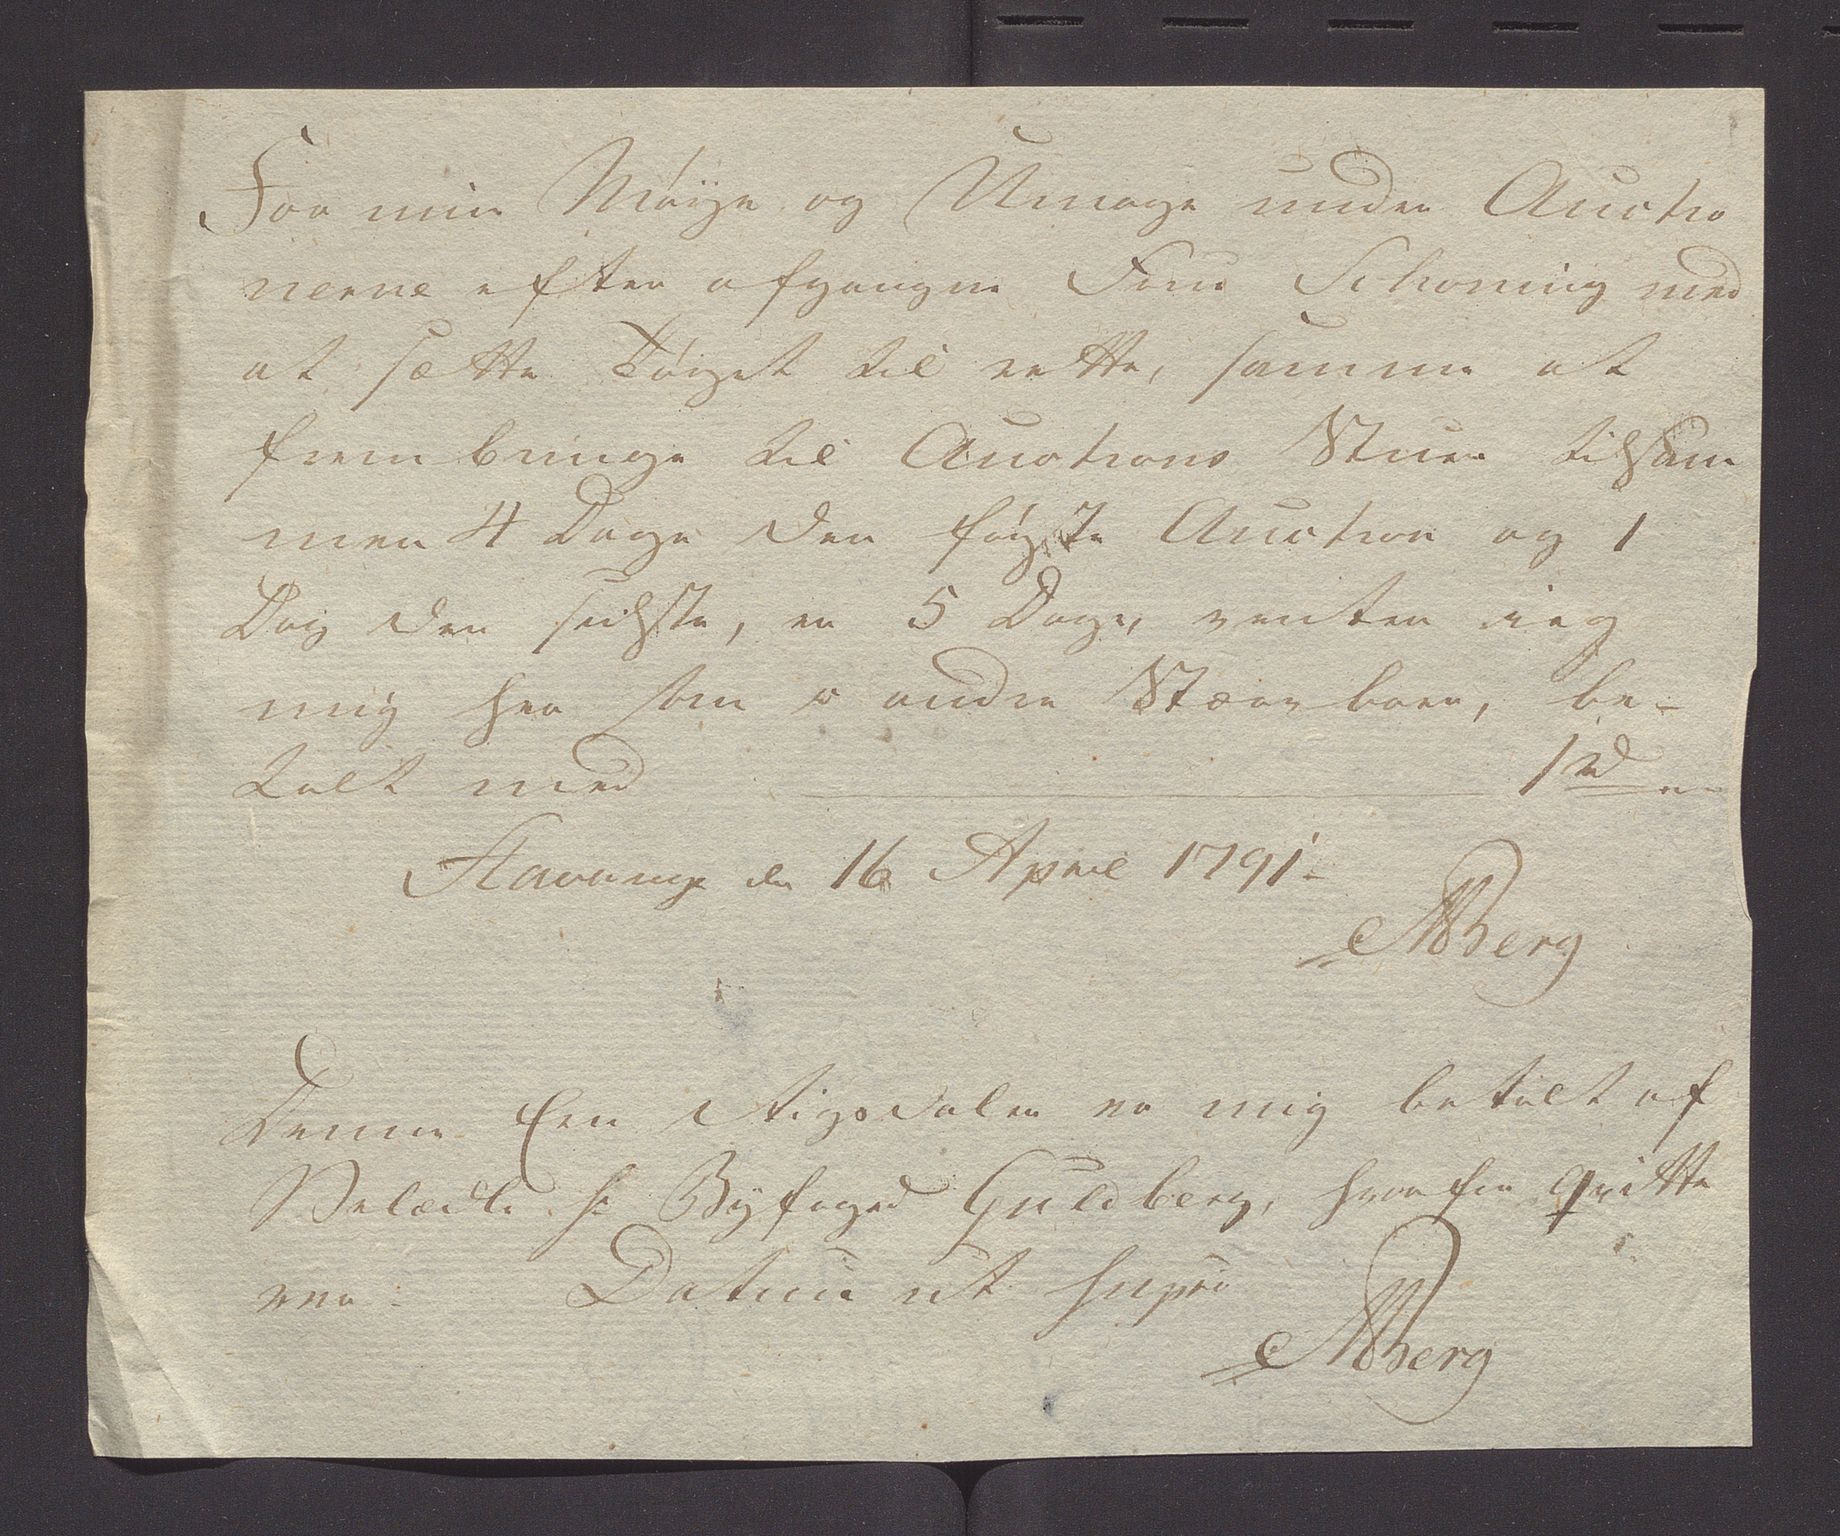 For min Møÿe og Umage under Auctio
nerne efter afgangne Frue Schøning med
at sætte Tøiget til rette, samme at
frembringe til Auctions Stuen tilsam
men 4 Dage den første Auction og 1
Dag den sidste, er 5 Dage, venter ieg
mig her som i andre Stærvboer, be-
talt med 1 rd
Stavanger den 16 April 1791.
Berg
Denne Een Rigsdaler er mig betalt af
Velædle Hr Byfoged Guldberg, hvorfor qvitte
rer. Datum ut supra
Berg